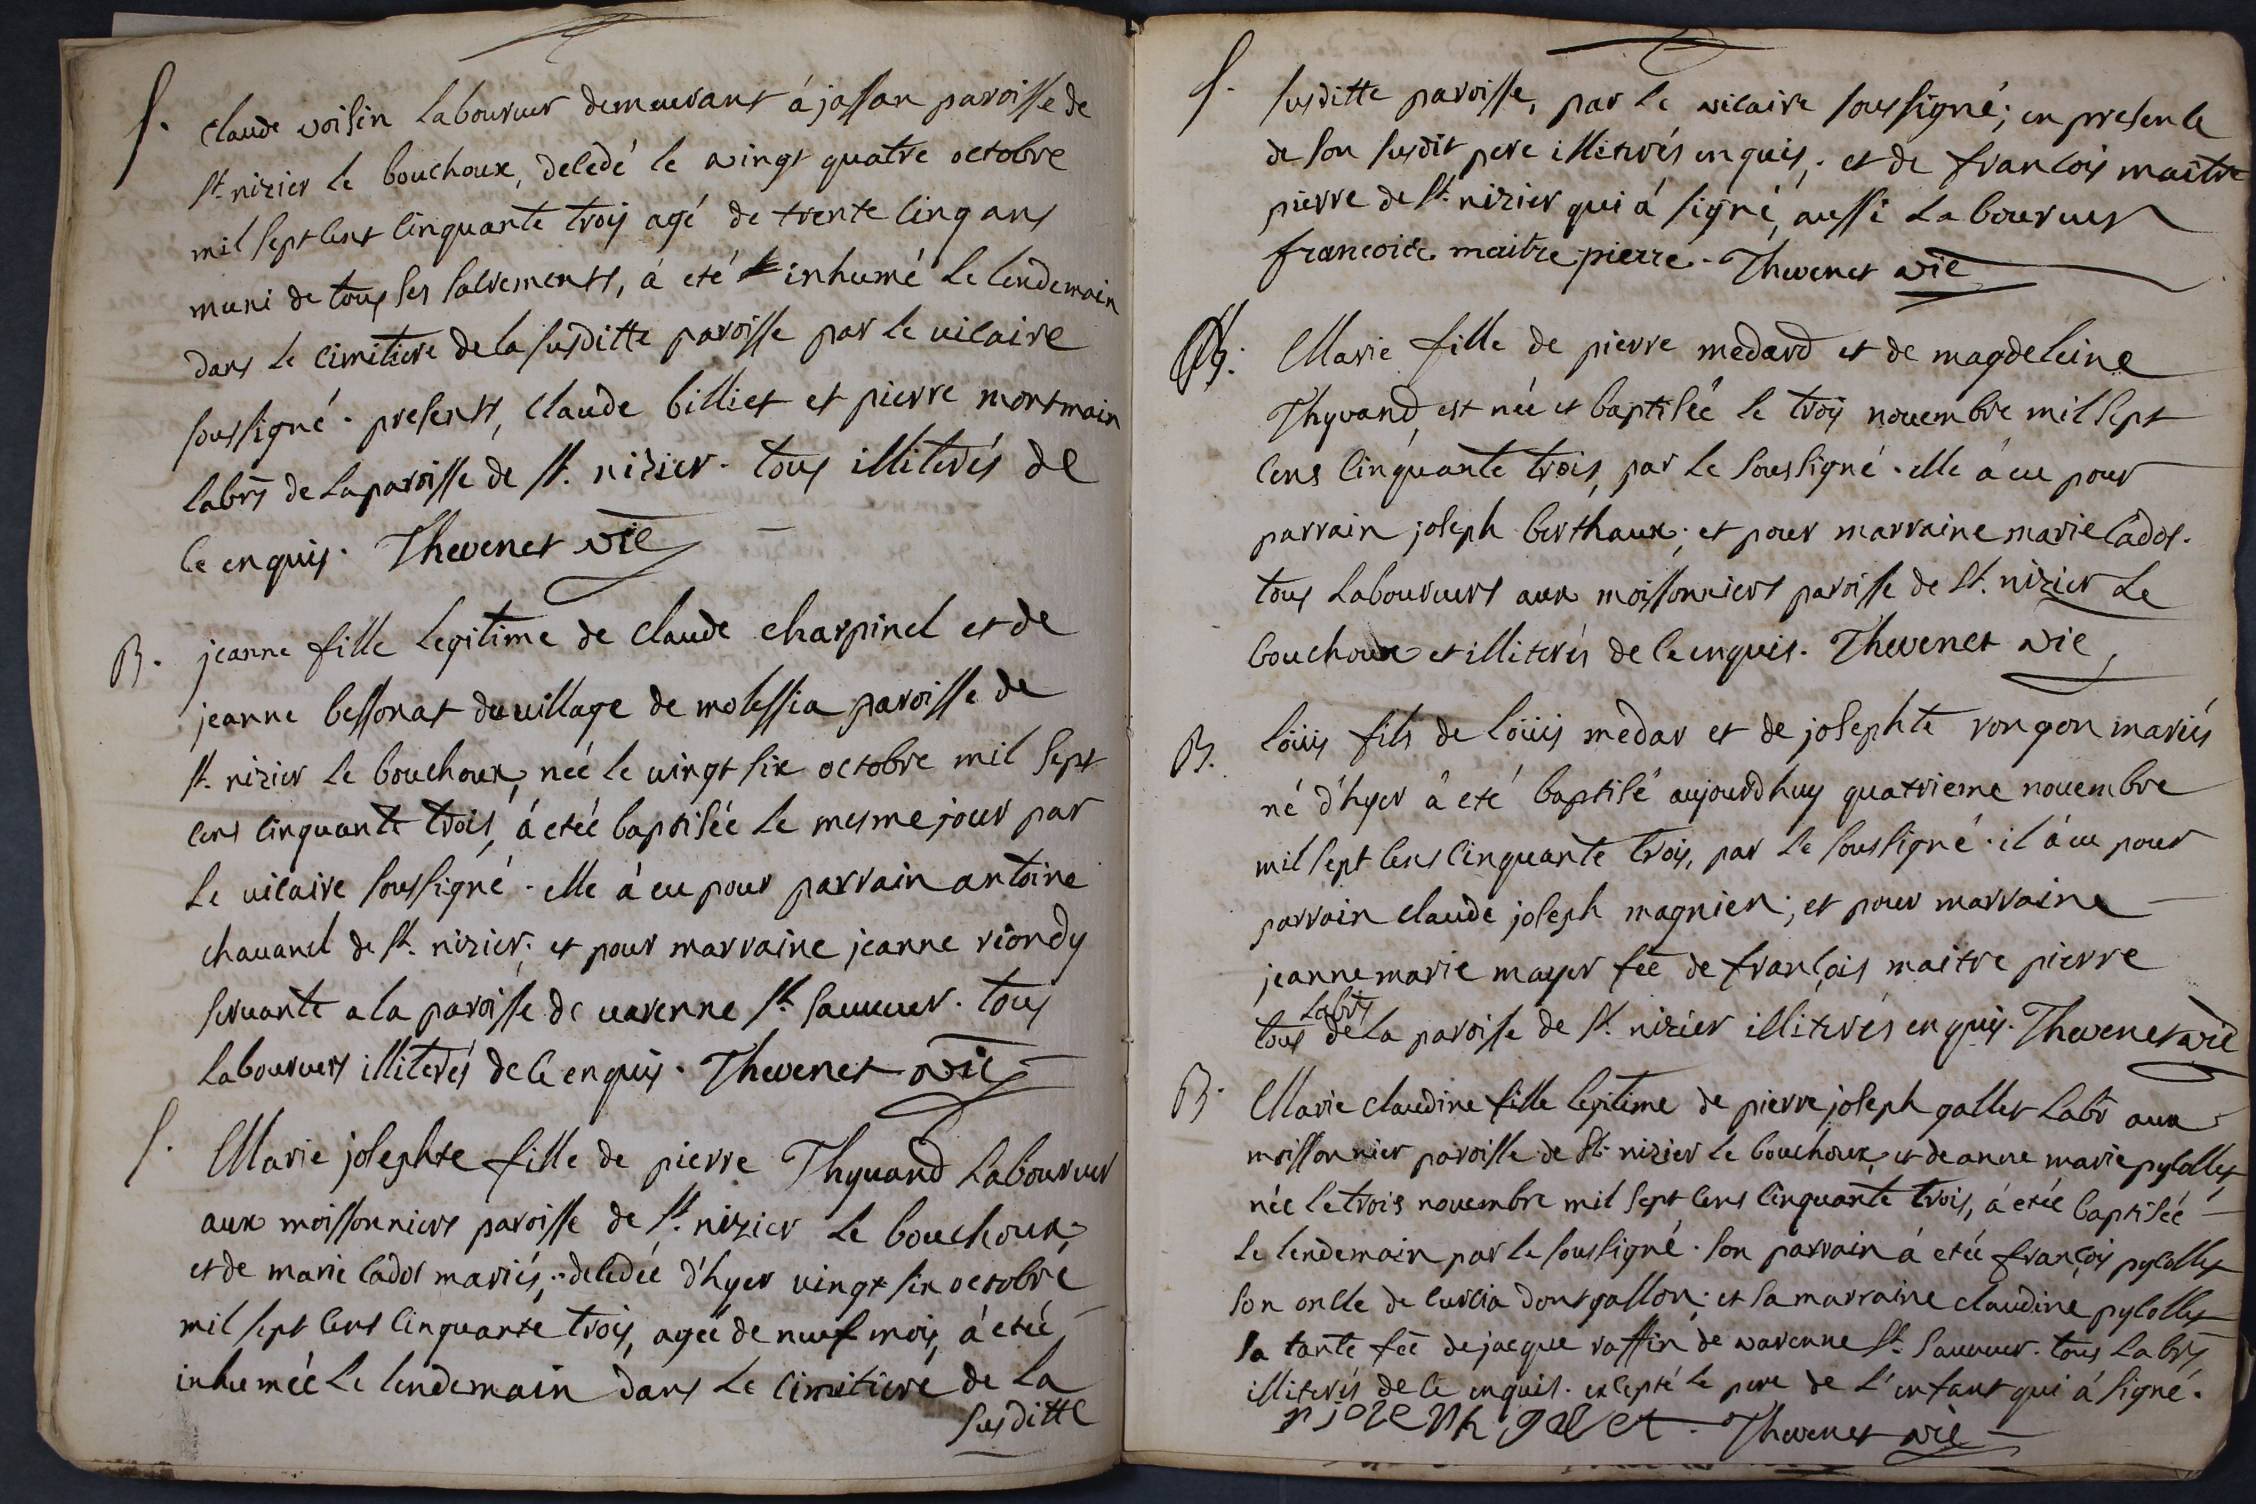 S. claude voisin laboureur demeurant á jassan paroisse de
St. nizier le bouchoux, decedé le vingt quatre octobre
mil sept cens cinquante trois agé de trente cinq ans
muni de tous ses sacrements, á eté inhumé le lendemain
dans le cimitiere de la susditte paroisse par le vicaire
soussigné. presents, claude billiet et pierre mortmain
labrs de la paroisse de St. nizier. tous illiterés de
ce enquis. Thevenet vic
B. jeanne fille legitime de claude charpinel et de
jeanne bessonat du village de molessia paroisse de
St. nizier le bouchoux, née le vingt six octobre mil sept
cens cinquante trois, á etéé baptisée le mesme jour par
le vicaire soussigné. elle á eu pour parrain antoine
chauanel de St. nizier; et pour marraine jeanne riondy
seruante a la paroisse de uarenne St. sauueur. tous
laboureurs illiterés de ce enquis. Thevenet vic
S. Marie josephte fille de pierre Thyuand laboureur
aux moissonniers paroisse de St. nizier le bouchoux,
et de marie cadot mariés, decedéé d'hyer vingt six octobre
mil sept cens cinquante trois, agéé de neuf mois, á etéé
inhuméé le lendemain dans le cimitiere de la
susditte
S. susditte paroisse, par le vicaire soussigné; en presence
de son susdit pere illiterés enquis, et de francois maitre
pierre de St. nizier qui á signé, aussi laboureur
francois maitre pierre. Thevenet vic
B. Marie fille de pierre medard et de magdeleine
Thyvand, est néé et baptiséé le trois nouembre mil sept
cens cinquante trois, par le soussigné. elle á eu pour
parrain joseph berthaux; et pour marraine marie cadot.
tous laboureurs aux moissonniers paroisse de St. nizier le
bouchoux et illiterés de ce enquis. Thevenet vic
B. loüis fils de loüis medar et de josephte rongon mariés
né d'hyer á eté baptisé aujourdhuy quatrieme nouembre
mil sept cens cinquante trois, par le soussigné. il á eu pour
parrain claude joseph magnien; et pour marraine
jeanne marie mayer fee de françois maitre pierre
labrs
tous de la paroisse de St. nizier illiterés enquis. Thevenet vic
B. Marie claudine fille legitime de pierre joseph gallet labr aux
moissonnier paroisse de St. nizier le bouchoux, et de anne marie pylallet
née le trois nouembre mil sept cens cinquante trois, á etéé baptiséé
le lendemain par le soussigné. son parrain á etéé françois pylallet
son oncle de curcia dontgallon; et sa marraine claudine pylollet
sa tante fee de jacque raffin de varenne St. sauueur. tous labrs
illiterés de ce enquis. excepté le pere de l'enfant qui á signé.
p joseph galet. Thevenet vic